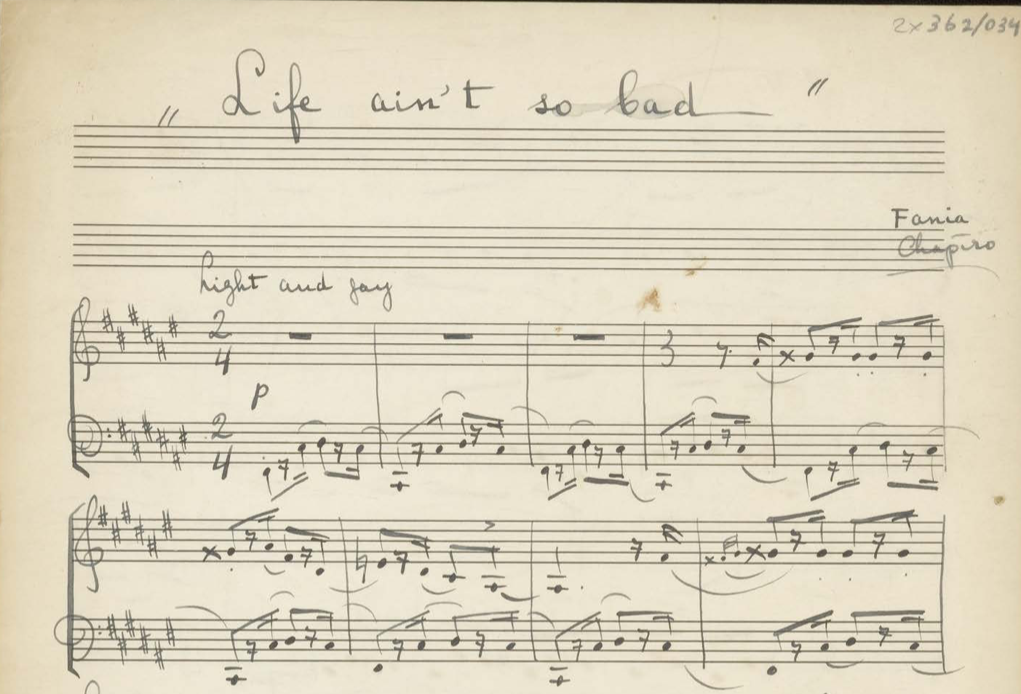 2x362/034
„ Life ain't so bad "
Fania
Chapiro
Light and gay
2
4
p
2
4